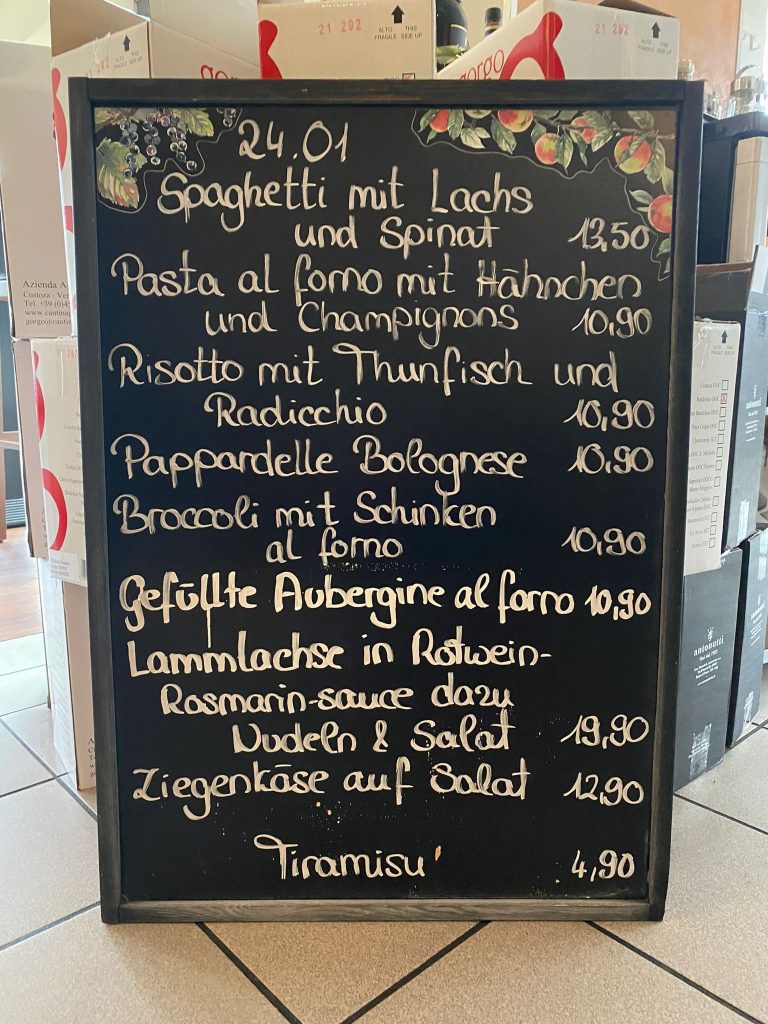 21 292
ALTO
THIS
FRAGILE
SIDE UP
gorgo
gorgo
24.01
Spaghetti mit Lachs
und Spinat 13,50
Pasta al forno mit Hähnchen
und Champignons 10,90
Risotto mit Thunfisch und
Radicchio 10,90
Pappardelle Bolognese 10,90
Broccoli mit Schinken
al forno 10,90
Gefüllte Aubergine al forno 10,90
Lammlachse in Rotwein-
Rosmarin-sauce dazu
Nudeln & Salat 19,90
Ziegenkäse auf Salat 12,90
Tiramisu' 4,90
Azienda A
Custoza - Ver
antonutti